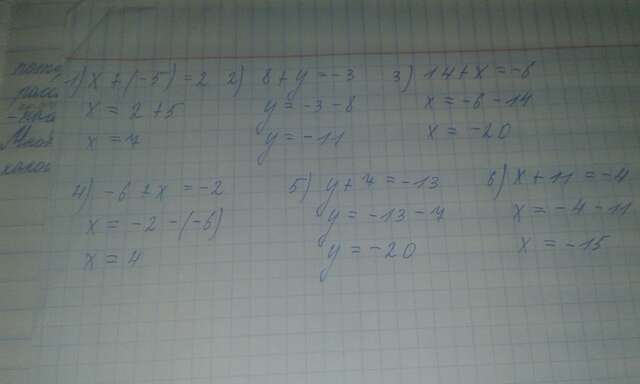 1) x + (-5) = 2
x = 2 + 5
x = 7
2) 8 + y = -3
y = -3 - 8
y = -11
3) 14 + x = -6
x = -6 - 14
x = -20
4) -6 + x = -2
x = -2 - (-6)
x = 4
5) y + 7 = -13
y = -13 - 7
y = -20
6) x + 11 = -4
x = -4 - 11
x = -15